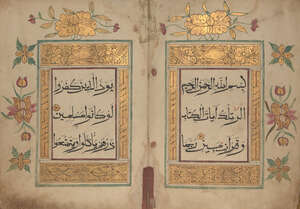 بسم الله الرحمن الرحيم
الر تلك آيات الكتاب
وقرآن مبين ربما
يود الذين كفروا
لو كانوا مسلمين
ذرهم يأكلوا ويتمتعوا